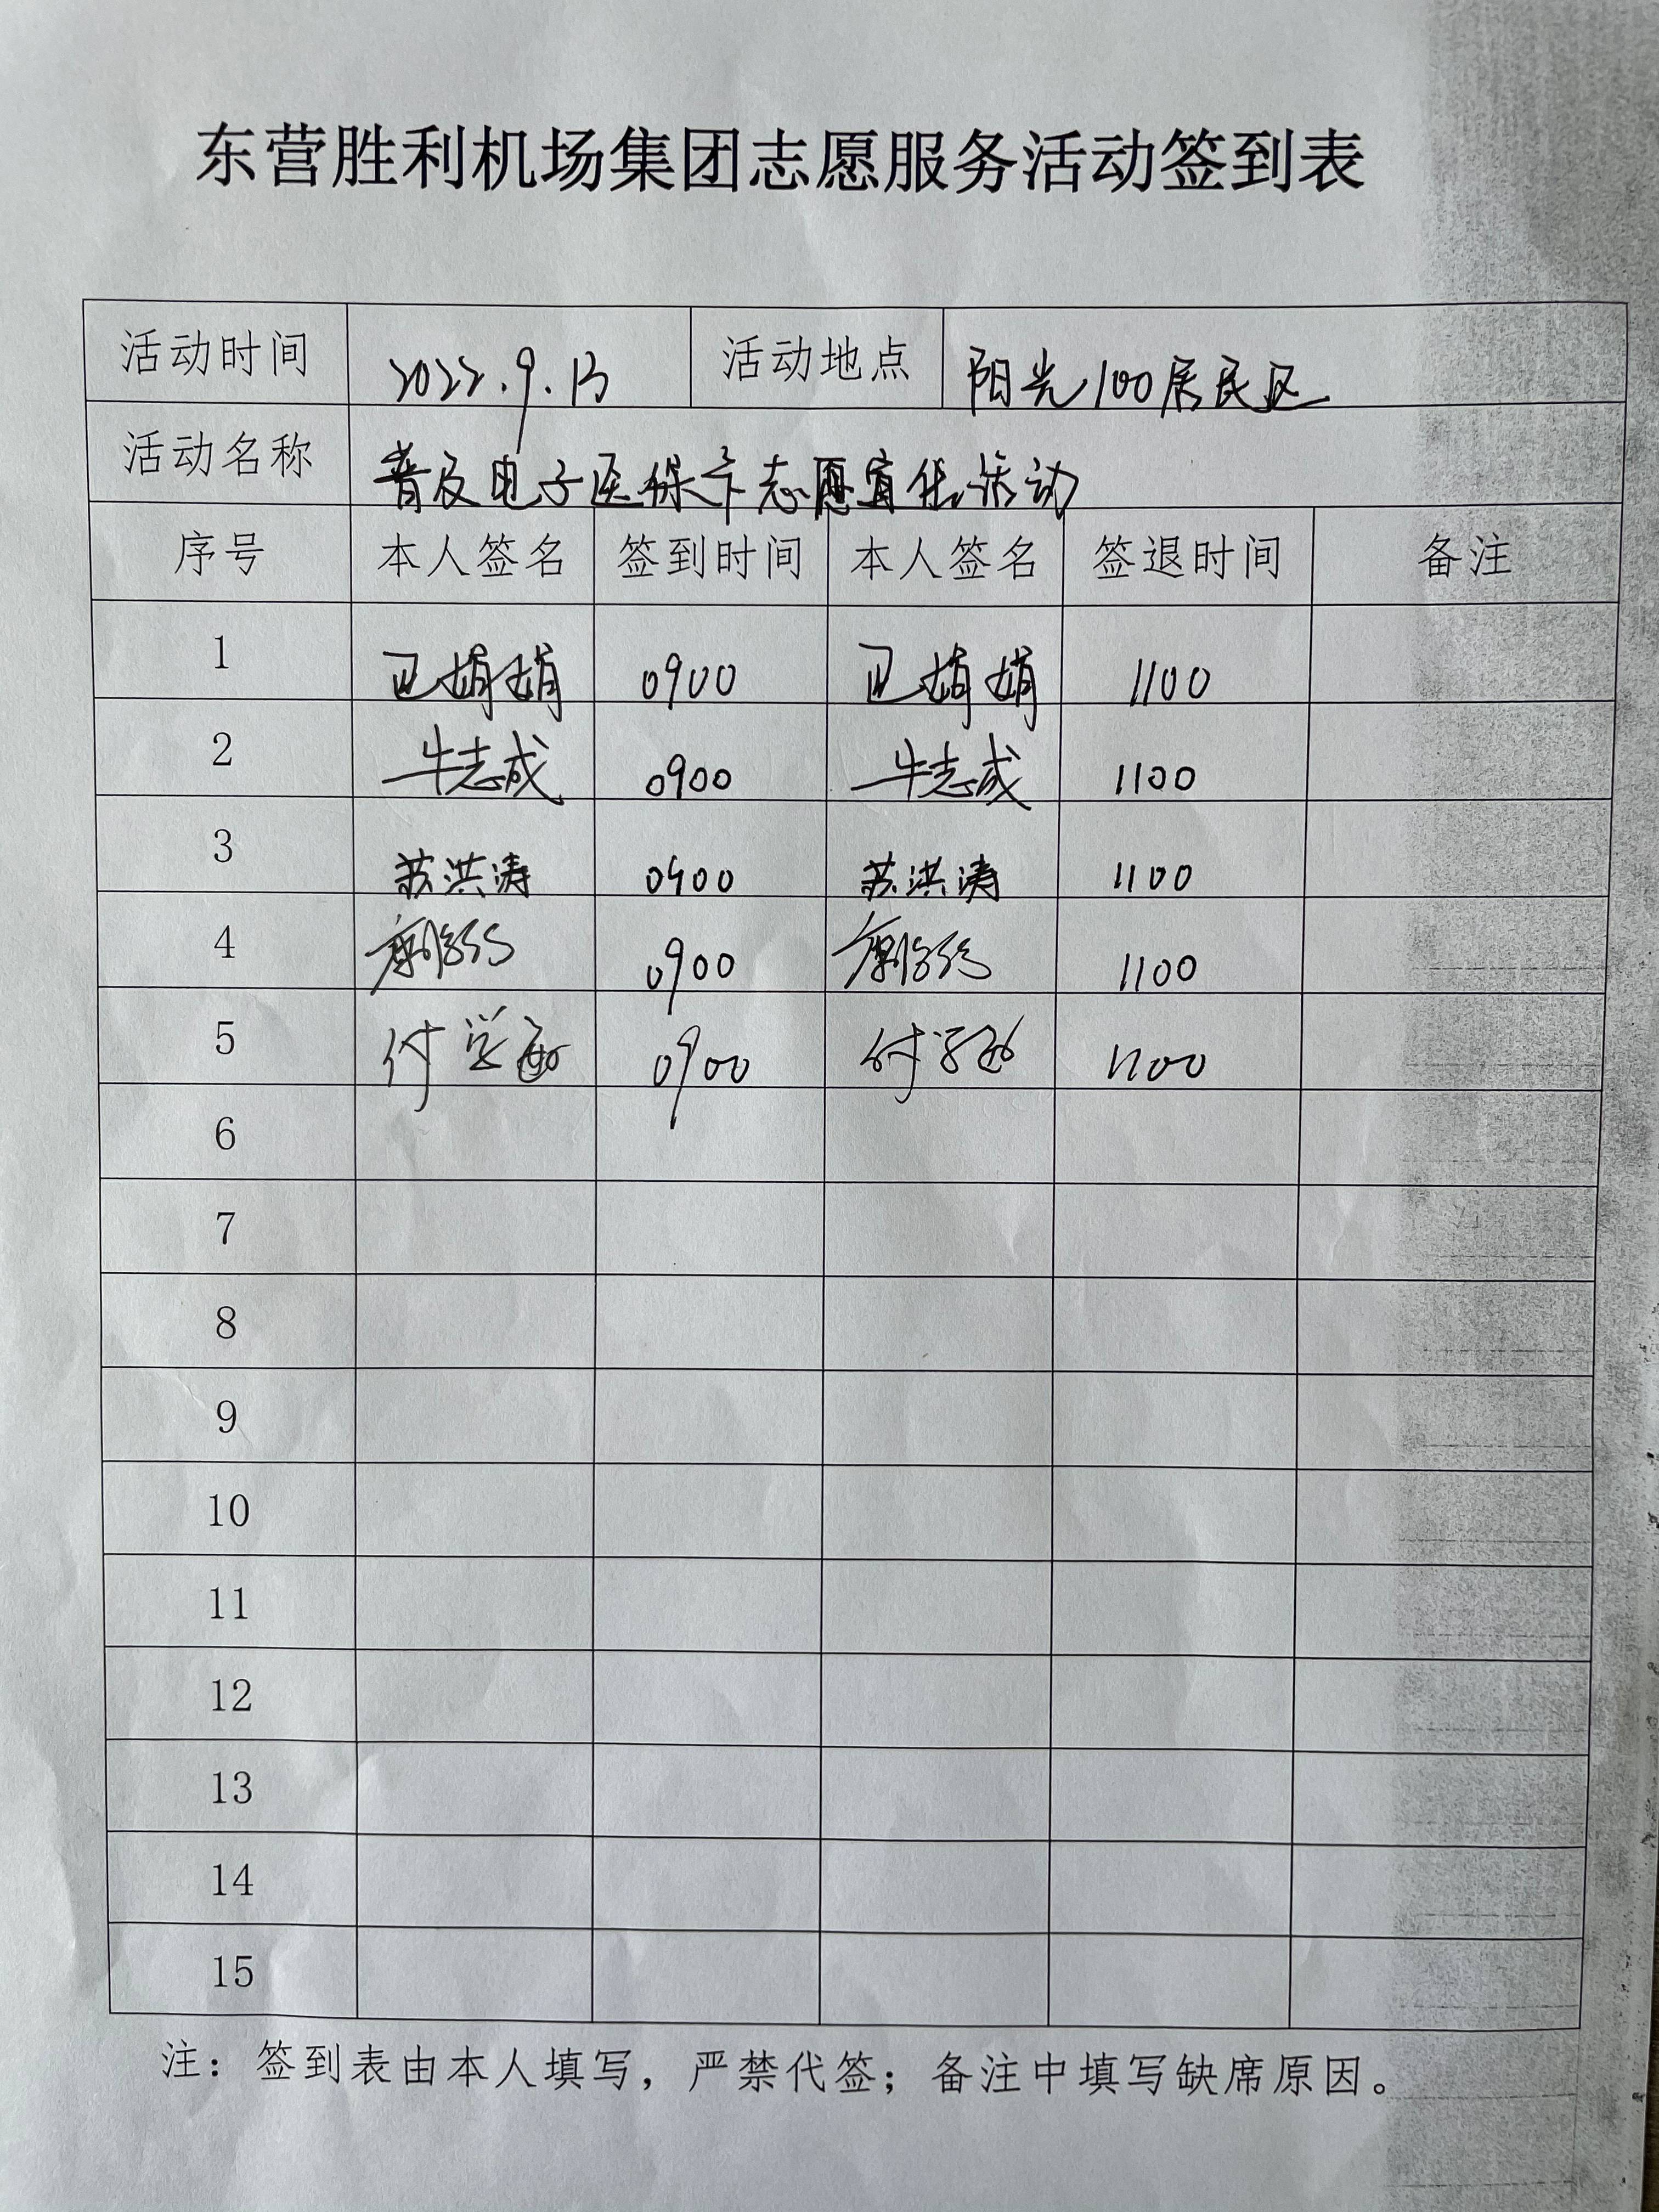 东营胜利机场集团志愿服务活动签到表
活动时间 2022.9.13 活动地点 阳光100居民区
活动名称 普及电子医保卡志愿宣传活动
序号 本人签名 签到时间 本人签名 签退时间 备注
1 卫娟娟 0900 卫娟娟 1100
2 牛志成 0900 牛志成 1100
3 苏洪涛 0900 苏洪涛 1100
4 0900 1100
5 付学 0900 付学 1100
6
7
8
9
10
11
12
13
14
15
注：签到表由本人填写，严禁代签；备注中填写缺席原因。